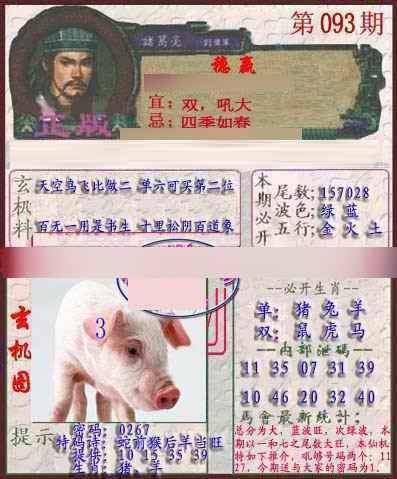 第093期
諸葛亮
穩贏
宜：双，吼大
忌：四季如春
正版
玄机料
天空鸟飞比做二 单六可买第二位
百无一用是书生 十里松阴百道象
本期必开
尾数;157028
波色;绿 蓝
五行;金 火 土
玄机图
3
--必开生肖--
单: 猪 兔 羊
双: 鼠 虎 马
--内部泄码--
11 35 07 31 39
10 46 20 32 40
馬會最新統計:
总分为大，蓝波旺，次绿波，本
期以一和七之尾数大旺，本仙机
特如下推介，吼够号码两个：11
27，今期送与大家的密码为1．
提示
密码：0267
特码诗：蛇前猴后羊当旺
提倍：10 15 35 39
生肖：猪、羊